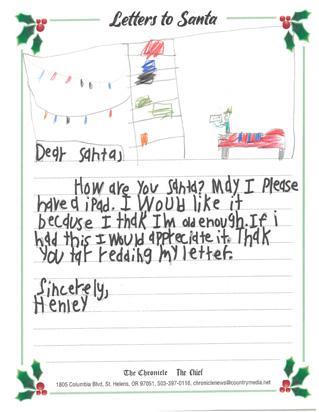 Letters to Santa
Dear Santa,
How are you Santa? May I Please
have a iPad. I Would like it
because I thak I'm old enough. If i
had this I would appreciate it. Thak
you far redding my letter.
Sincerely,
Henley
The Chronicle The Chief
1805 Columbia Blvd, St. Helens, OR 97051, 503-397-0116, chroniclenews@countrymedia.net